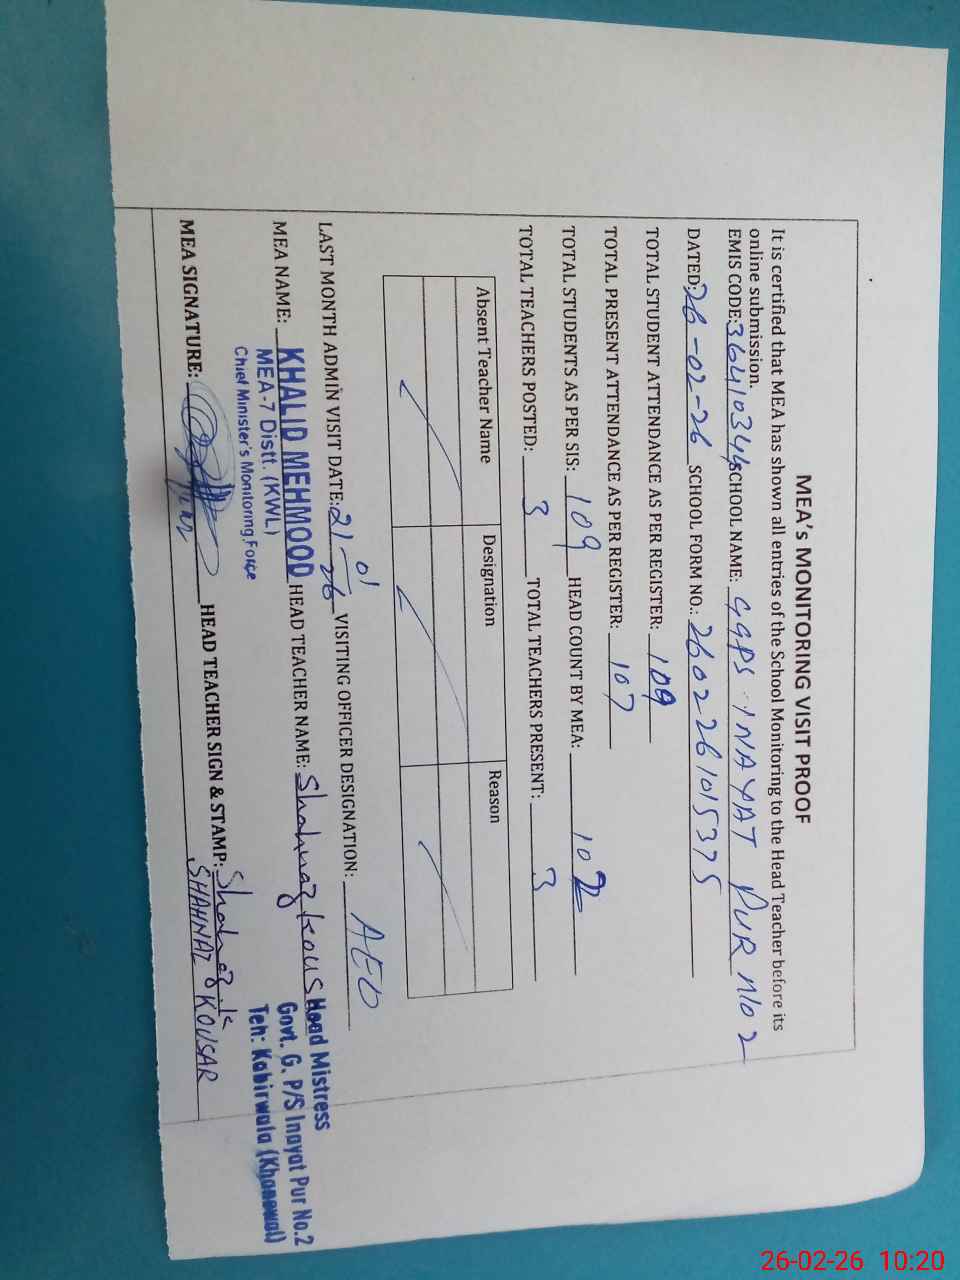 MEA's MONITORING VISIT PROOF
It is certified that MEA has shown all entries of the School Monitoring to the Head Teacher before its
online submission.
EMIS CODE: 36410344 SCHOOL NAME: GGPS INAYAT PUR N/o 2
DATED: 26-02-26 SCHOOL FORM NO.: 26022610 15375
TOTAL STUDENT ATTENDANCE AS PER REGISTER: 109
TOTAL PRESENT ATTENDANCE AS PER REGISTER: 107
TOTAL STUDENTS AS PER SIS: 109 HEAD COUNT BY MEA: 102
TOTAL TEACHERS POSTED: 3 TOTAL TEACHERS PRESENT: 3
Absent Teacher Name Designation Reason
LAST MONTH ADMIN VISIT DATE: 21-01-26 VISITING OFFICER DESIGNATION: AEO
MEA NAME: KHALID MEHMOOD HEAD TEACHER NAME: Shahnaz Kous
MEA-7 Distt. (KWL)
Chief Minister's Monitoring Force
Head Mistress
Govt. G. P/S Inayat Pur No.2
Teh: Kabirwala (Khanewal)
MEA SIGNATURE: HEAD TEACHER SIGN & STAMP: Shahnaz K
SHAHNAZ KOUSAR
26-02-26 10:20